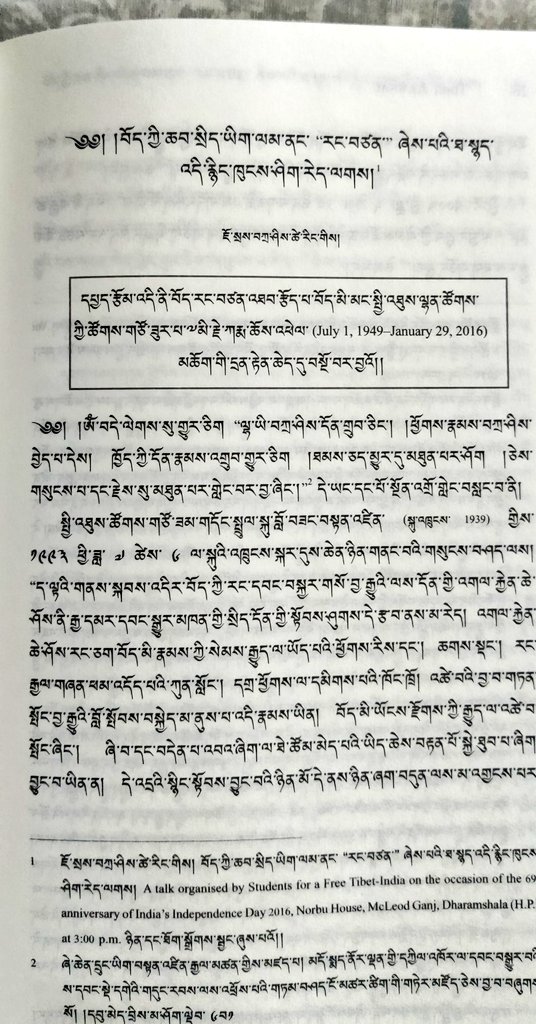 ༄༅། །བོད་ཀྱི་ཆབ་སྲིད་ཡིག་ལམ་ནང་ “རང་བཙན་” ཞེས་པའི་ཐ་སྙད་
འདི་རྙིང་ཁུངས་ཤིག་རེད་ལགས།¹
ཇོ་སྲས་བཀྲ་ཤིས་ཚེ་རིང་གིས།
དཔྱད་རྩོམ་འདི་ནི་བོད་རང་བཙན་འཐབ་རྩོད་པ་བོད་མི་མང་སྤྱི་འཐུས་ལྷན་ཚོགས་
ཀྱི་ཚོགས་གཙོ་ཟུར་པ་༸མི་རྗེ་ཀརྨ་ཆོས་འཕེལ་ (July 1, 1949–January 29, 2016)
མཆོག་གི་དྲན་རྟེན་ཆེད་དུ་བསྔོ་བར་བྱའོ།།
༄༅། །ཨོཾ་བདེ་ལེགས་སུ་གྱུར་ཅིག “ལྷ་ཡི་བཀྲ་ཤིས་དོན་གྲུབ་ཅིང་། །ཕྱོགས་རྣམས་བཀྲ་ཤིས་
བྱེད་པ་དེས། ཁྱོད་ཀྱི་དོན་རྣམས་འགྲུབ་གྱུར་ཅིག །ཐམས་ཅད་མྱུར་དུ་མཐུན་པར་ཤོག །ཅེས་
གསུངས་པ་དང་རྗེས་སུ་མཐུན་པར་གླེང་བར་བྱ་ཞིང་།”² དེ་ཡང་དང་པོ་སྔོན་འགྲོ་གླེང་བསླང་བ་ནི།
སྤྱི་འཐུས་ཚོགས་གཙོ་ཟམ་གདོང་སྤྲུལ་སྐུ་བློ་བཟང་བསྟན་འཛིན་ (སྐུ་འཁྲུངས་ 1939) གྱིས་
༡༩༩༣ ཕྱི་ཟླ་ ༧ ཚེས་ ༦ ལ་སྐུའི་འཁྲུངས་སྐར་དུས་ཆེན་ཉིན་གནང་བའི་གསུངས་བཤད་ལས།
“ད་ལྟའི་གནས་སྐབས་འདིར་བོད་ཀྱི་རང་དབང་བསྐྱར་གསོ་བྱ་རྒྱུའི་ལས་དོན་གྱི་འགལ་རྐྱེན་ཆེ་
ཤོས་ནི་རྒྱ་དམར་དབང་སྒྱུར་མཁན་གྱི་སྲིད་དོན་གྱི་སྟོབས་ཤུགས་དེ་རྩ་བ་ནས་མ་རེད། འགལ་རྐྱེན་
ཆེ་ཤོས་རང་ཅག་བོད་མི་རྣམས་ཀྱི་སེམས་རྒྱུད་ལ་ཡོད་པའི་ཕྱོགས་རིས་དང་། ཆགས་སྡང་། རང་
རྒྱལ་གཞན་ཕམ་འདོད་པའི་ཀུན་སློང་། དགྲ་ཕྱོགས་ལ་དམིགས་པའི་ཁོང་ཁྲོ། འཚེ་བའི་བྱ་བ་གཏན་
སྤོང་བྱ་རྒྱུའི་བློ་སྟོབས་བསྐྱེད་མ་ནུས་པ་འདི་རྣམས་ཡིན། བོད་མི་ཡོངས་རྫོགས་ཀྱི་རྒྱུད་ལ་འཚེ་བ་
སྤོང་ཞིང་། ཞི་བ་དང་བདེན་པ་འབའ་ཞིག་ལ་ཐེ་ཚོམ་མེད་པའི་ཡིད་ཆེས་བརྟན་པོ་སྐྱེ་ཐུབ་པ་ཞིག་
བྱུང་བ་ཡིན་ན། དེ་འདྲའི་སྙིང་སྟོབས་བྱུང་བའི་ཉིན་མོ་དེ་ནས་ཉིན་ཞག་བདུན་ལས་མ་འགྱངས་པར་
1 ཇོ་སྲས་བཀྲ་ཤིས་ཚེ་རིང་གིས། བོད་ཀྱི་ཆབ་སྲིད་ཡིག་ལམ་ནང་ “རང་བཙན་” ཞེས་པའི་ཐ་སྙད་འདི་རྙིང་ཁུངས་
ཤིག་རེད་ལགས། A talk organised by Students for a Free Tibet-India on the occasion of the 69
anniversary of India’s Independence Day 2016, Norbu House, McLeod Ganj, Dharamshala (H.P.
at 3:00 p.m. ཉིན་དང་ཐོག་སྒྲོགས་སྦྱང་ཞུས་པའོ།།
2 ཞེ་ཆེན་དྲུང་ཡིག་བསྟན་འཛིན་རྒྱལ་མཚན་གྱིས་མཛད་པ། མདོ་སྨད་ནོར་ལྡན་གྱི་དཀྱིལ་འཁོར་ལ་དབང་བསྒྱུར་བའི་
ས་དབང་སྡེ་དགེའི་གདུང་རབས་ལས་འཕྲོས་པའི་གཏམ་བཤད་ངོ་མཚར་ཚིག་གི་གཏེར་མཛོད་ཅེས་བྱ་བ་བཞུགས་
སོ། །དབུ་མེད་བྲིས་མ་ཤོག་ལྡེབ་ ༦བ༡